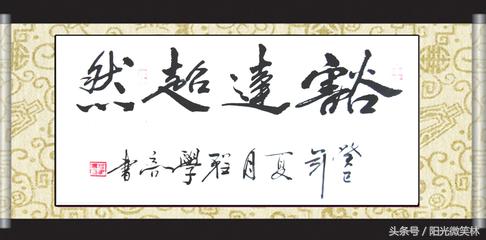 豁達超然
癸巳年夏月程學書
头条号 / 阳光微笑林